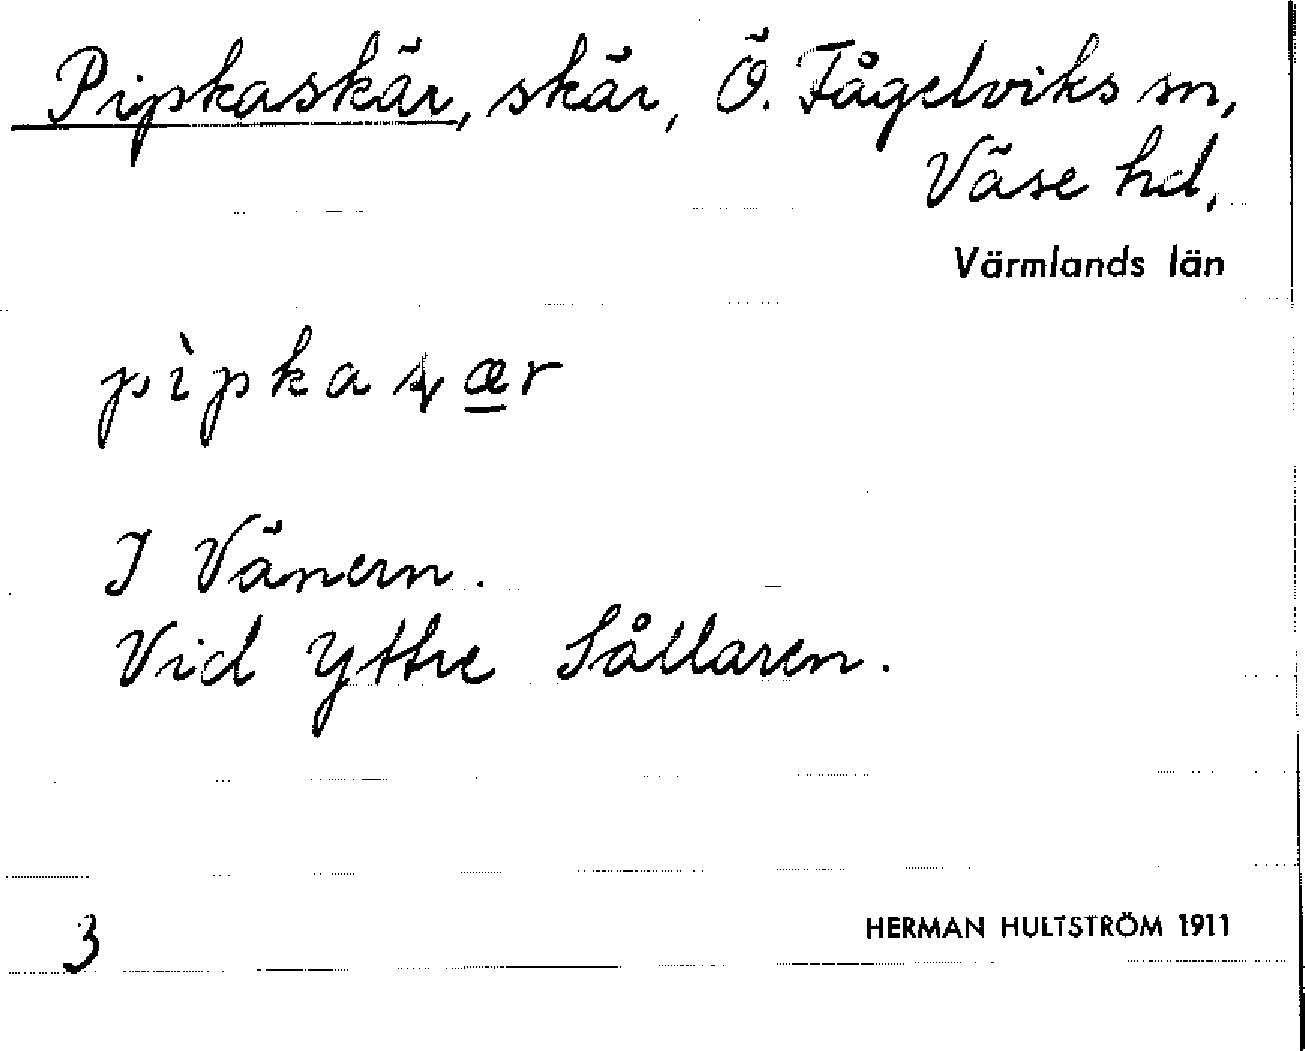 Pipkaskär, skär, Ö. Fågelviks sn,
Väse hd,
Värmlands län
pìpkaʂær
I Vänern.
Vid Yttre Sållaren.
3
HERMAN HULTSTRÖM 1911